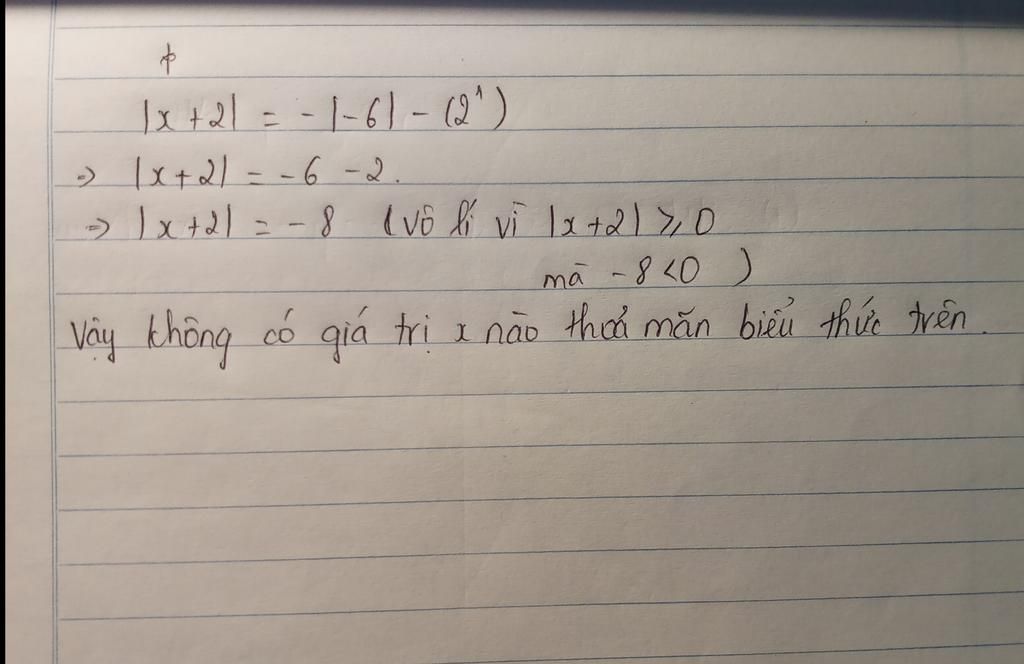 |x + 2| = - |-6| - (2¹)
=> |x + 2| = -6 - 2.
=> |x + 2| = - 8 (vô lí vì |x + 2| ⩾ 0
mà - 8 < 0 )
Vậy không có giá trị x nào thoả mãn biểu thức trên.